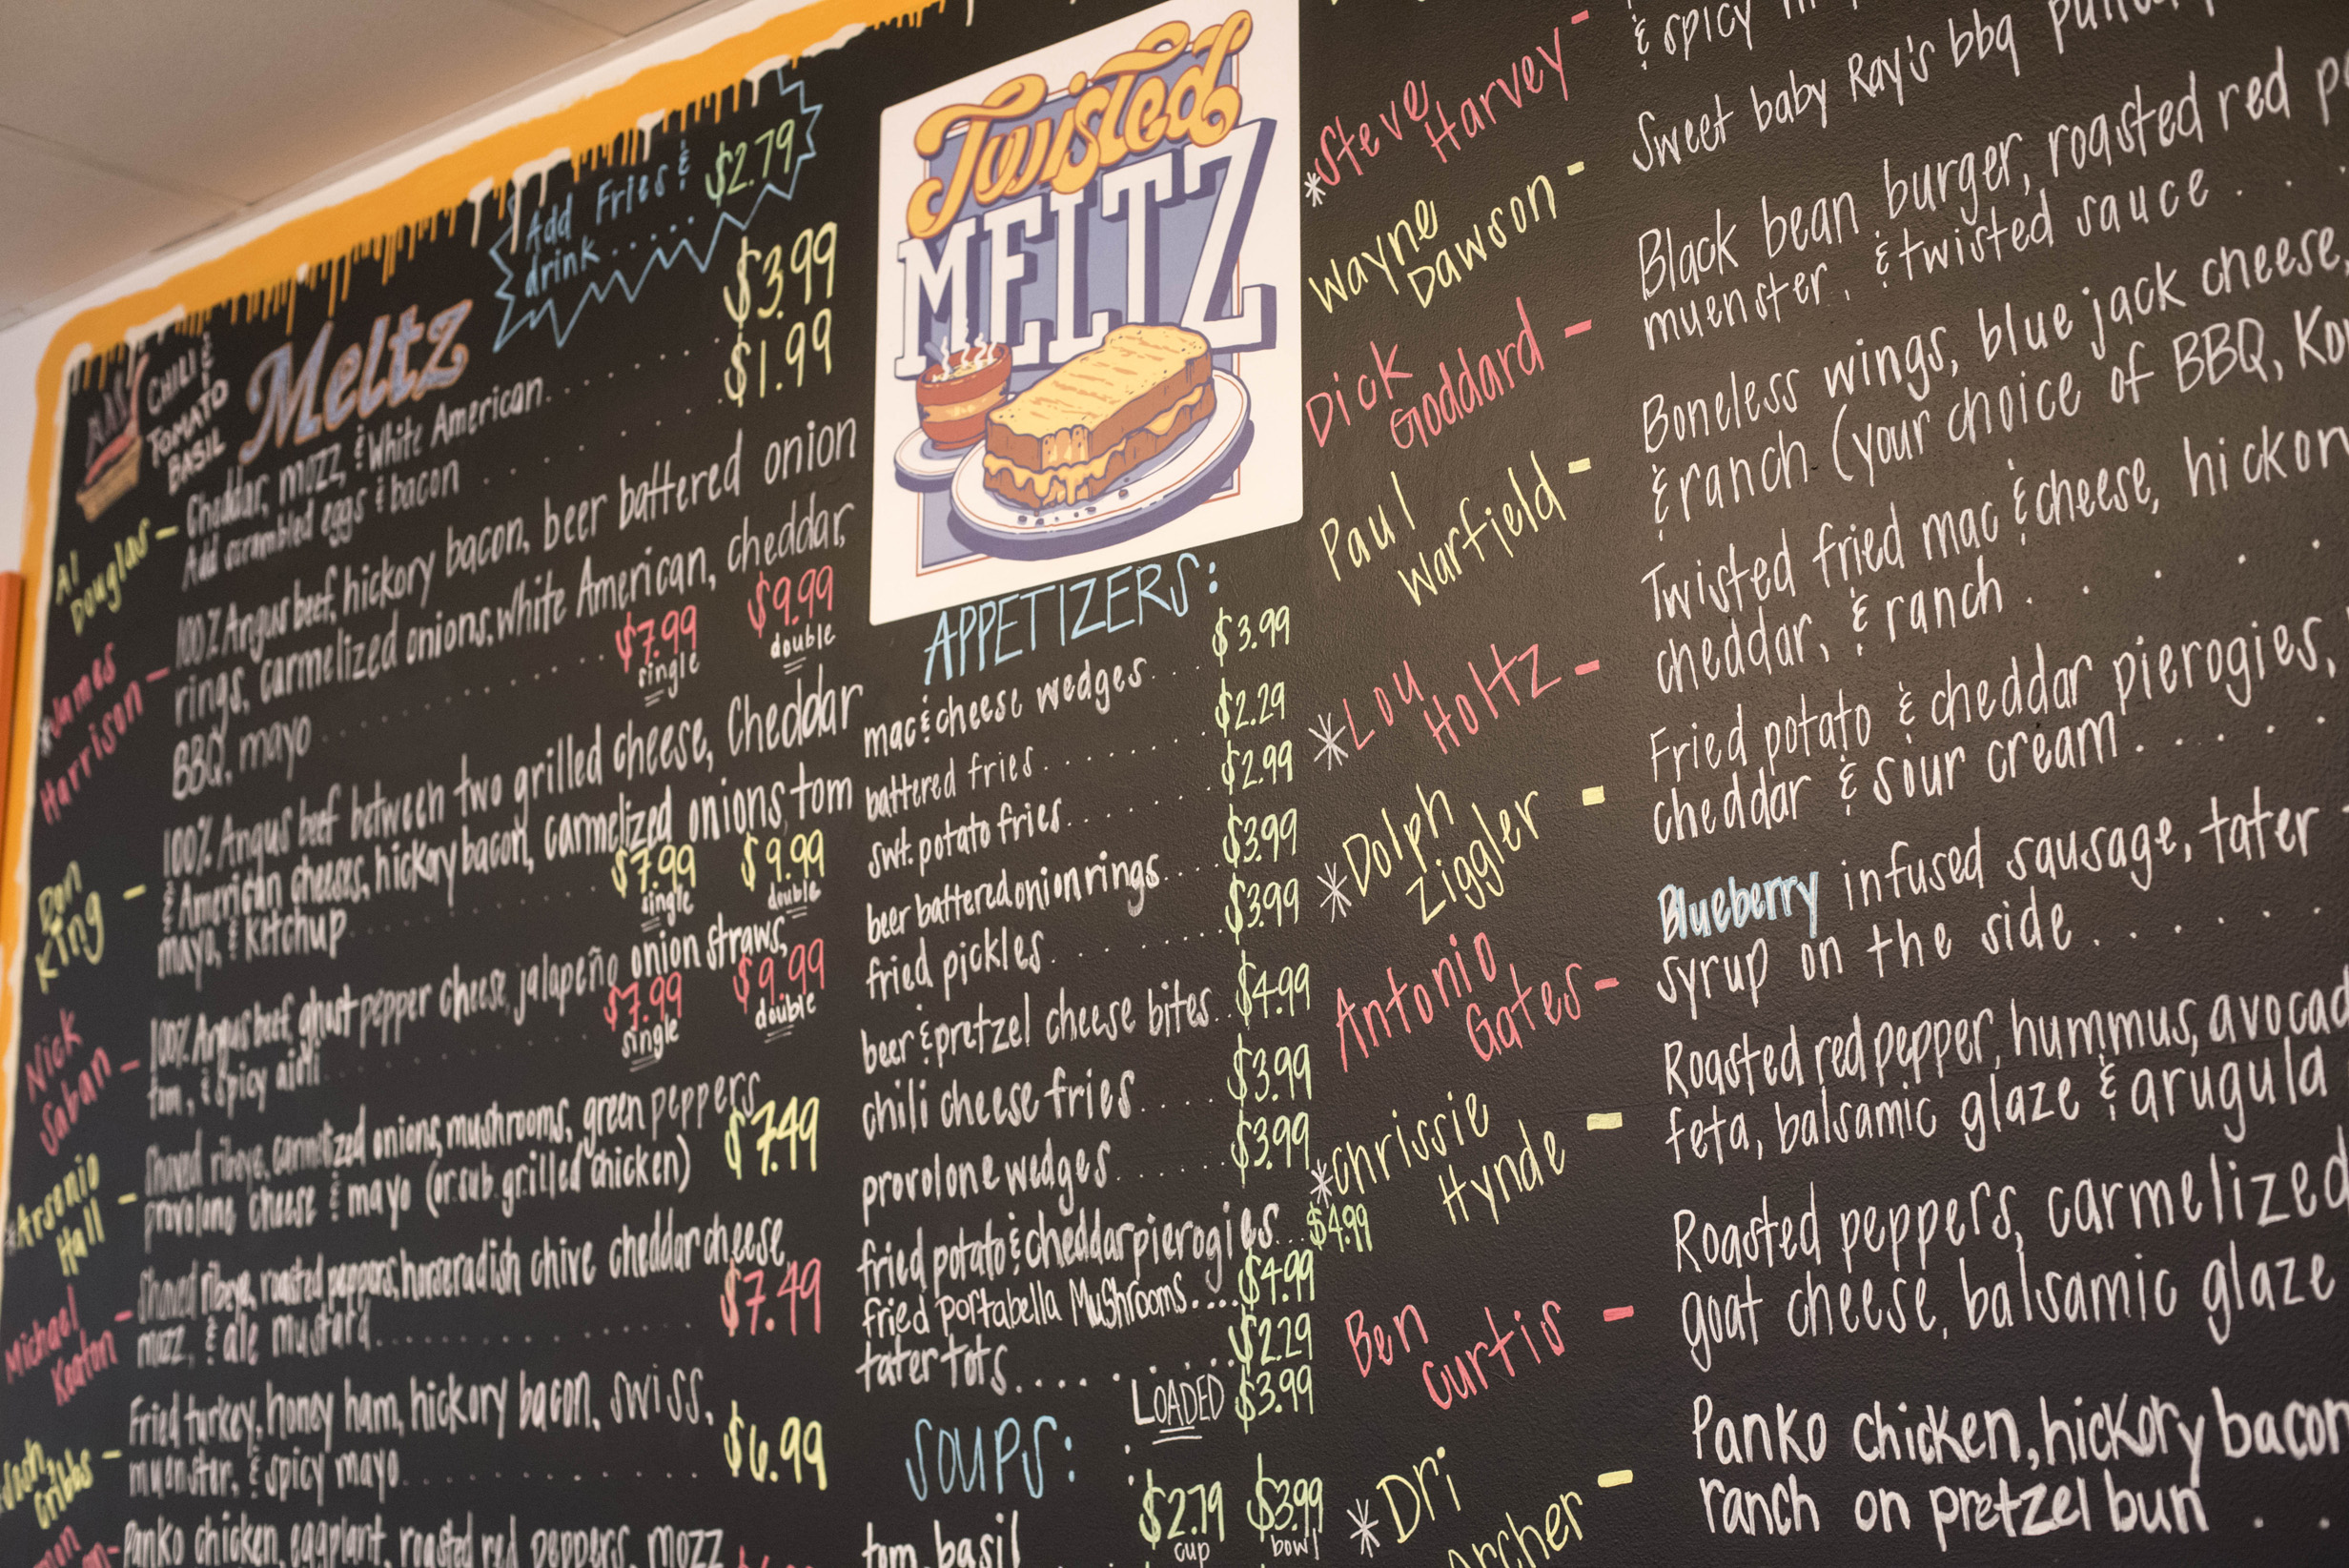 Add Fries &
drink..... $2.79
CHILI &
TOMATO
BASIL
Meltz
Al
Douglas -
Cheddar, mozz, & White American....... $3.99
Add scrambled eggs & bacon ....... $1.99
*James
Harrison -
100% Angus beef, hickory bacon, beer battered onion
rings, carmelized onions, white American, cheddar,
BBQ, mayo ............ $7.99 $9.99
single double
Don
King -
100% Angus beef between two grilled cheese, Cheddar
& American cheeses, hickory bacon, carmelized onions, tom
mayo, & ketchup............ $7.99 $9.99
single double
Nick
Saban -
100% Angus beef, ghost pepper cheese, jalapeño onion straws,
tom, & spicy aioli............ $7.99 $9.99
single double
*Arsenio
Hall -
Shaved ribeye, carmelized onions, mushrooms, green peppers,
provolone cheese & mayo (or sub grilled chicken) $7.49
Michael
Keaton -
Shaved ribeye, roasted peppers, horseradish chive cheddar cheese,
mozz, & ale mustard............ $7.49
Josh
Cribbs -
Fried turkey, honey ham, hickory bacon, swiss,
muenster, & spicy mayo............ $6.99
Panko chicken, eggplant, roasted red peppers, mozz
Twisted
MELTZ
APPETIZERS:
mac & cheese wedges... $3.99
battered fries.......... $2.29
swt. potato fries........ $2.99
beer battered onion rings.... $3.99
fried pickles......... $3.99
beer & pretzel cheese bites.. $4.99
chili cheese fries..... $3.99
provolone wedges...... $3.99
fried potato & cheddar pierogies... $4.99
fried portabella Mushrooms.... $4.99
tater tots......... $2.29
LOADED $3.99
SOUPS:
$2.79 $3.99
cup bowl
tom. basil
& spicy
*Steve
Harvey -
Sweet baby Ray's bbq
Wayne
Dawson -
Black bean burger, roasted red
muenster, & twisted sauce...
Dick
Goddard -
Boneless wings, blue jack cheese,
& ranch (your choice of BBQ,
Paul
Warfield -
Twisted fried mac & cheese,
cheddar, & ranch.....
*Lou
Holtz -
Fried potato & cheddar pierogies,
cheddar & sour cream.....
*Dolph
Ziggler -
Blueberry infused sausage, tater
syrup on the side.....
Antonio
Gates -
Roasted red pepper, hummus,
feta, balsamic glaze & arugula
*Chrissie
Hynde -
Roasted peppers, carmelized
goat cheese, balsamic glaze
Ben
Curtis -
Panko chicken, hickory bacon
ranch on pretzel bun...
*Dri
Archer -